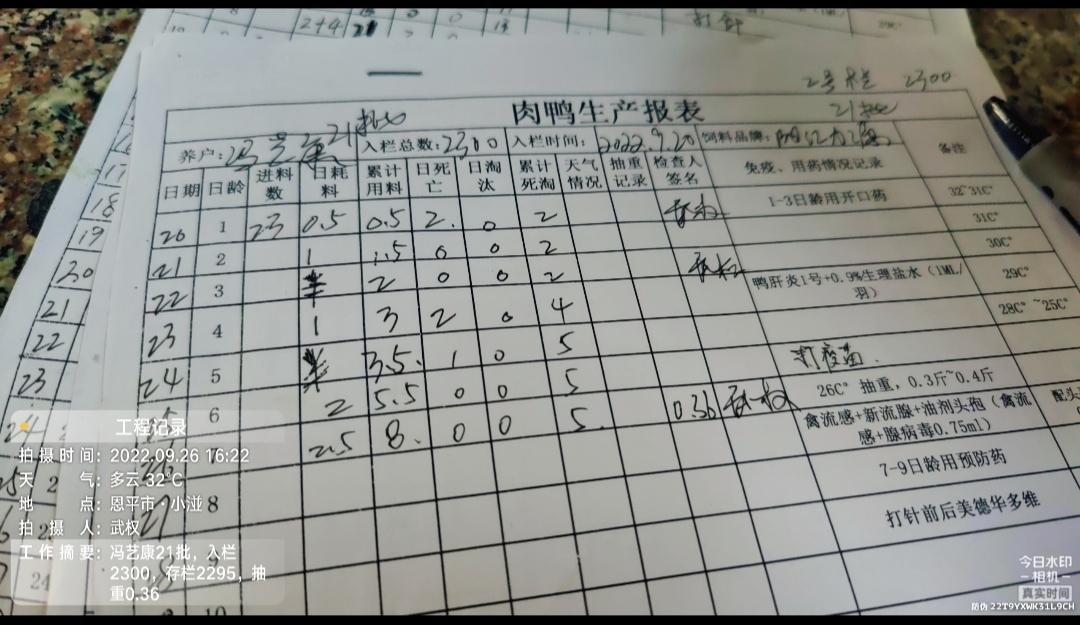 2+4 21 0 0
打针
2号栏 2300
21批
肉鸭生产报表
养户: 冯艺康21批 入栏总数:2300 入栏时间: 2022.9.20 饲料品牌:
日期 日龄 进料数 日耗料 累计用料 日死亡 日淘汰 累计死淘 天气情况 抽重记录 检查人签名 免疫、用药情况记录 备注
20 1 23 0.5 0.5 2. 0 2 武权 1-3日龄用开口药 32~31C°
31C°
21 2 1 1.5 0 0 2 30C°
22 3 2 0 0 2 武权 鸭肝炎1号+0.9%生理盐水（1ML/羽） 29C°
23 4 1 3 2 0 4 28C°~25C°
24 5 3.5. 1 0 5 打疫苗.
6 2 5.5 0 0 5 26C° 抽重，0.3斤~0.4斤
2.5 8. 0 0 5. 0.36 武权 禽流感+新流腺+油剂头孢（禽流感+腺病毒0.75ml） 配头
7-9日龄用预防药
8 打针前后美德华多维
10
17
18
19
20
21
22
23
24
24
工程记录
拍摄时间: 2022.09.26 16:22
天气: 多云 32°C
地点: 恩平市·小湴
拍摄人: 武权
工作摘要: 冯艺康21批，入栏
2300，存栏2295，抽
重0.36
今日水印
相机
真实时间
防伪 22T9YXWK31L9CH